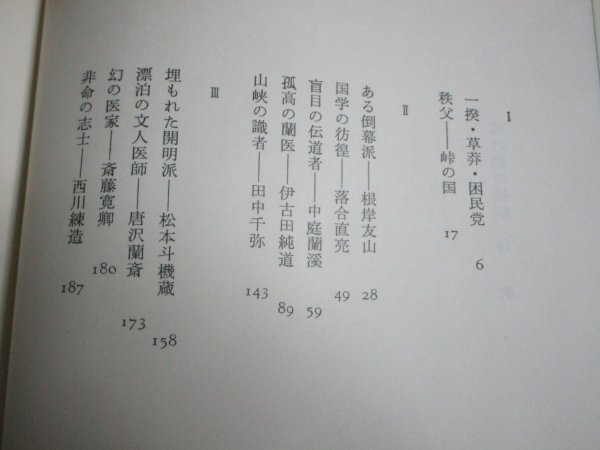 I
一揆・草莽・困民党 6
秩父——峠の国 17
II
ある倒幕派——根岸友山 28
国学の彷徨——落合直亮 49
盲目の伝道者——中庭蘭溪 59
孤高の蘭医——伊古田純道 89
山峡の識者——田中千弥 143
III
埋もれた開明派——松本斗機蔵 158
漂泊の文人医師——唐沢蘭斎 173
幻の医家——斎藤寛卿 180
非命の志士——西川練造 187